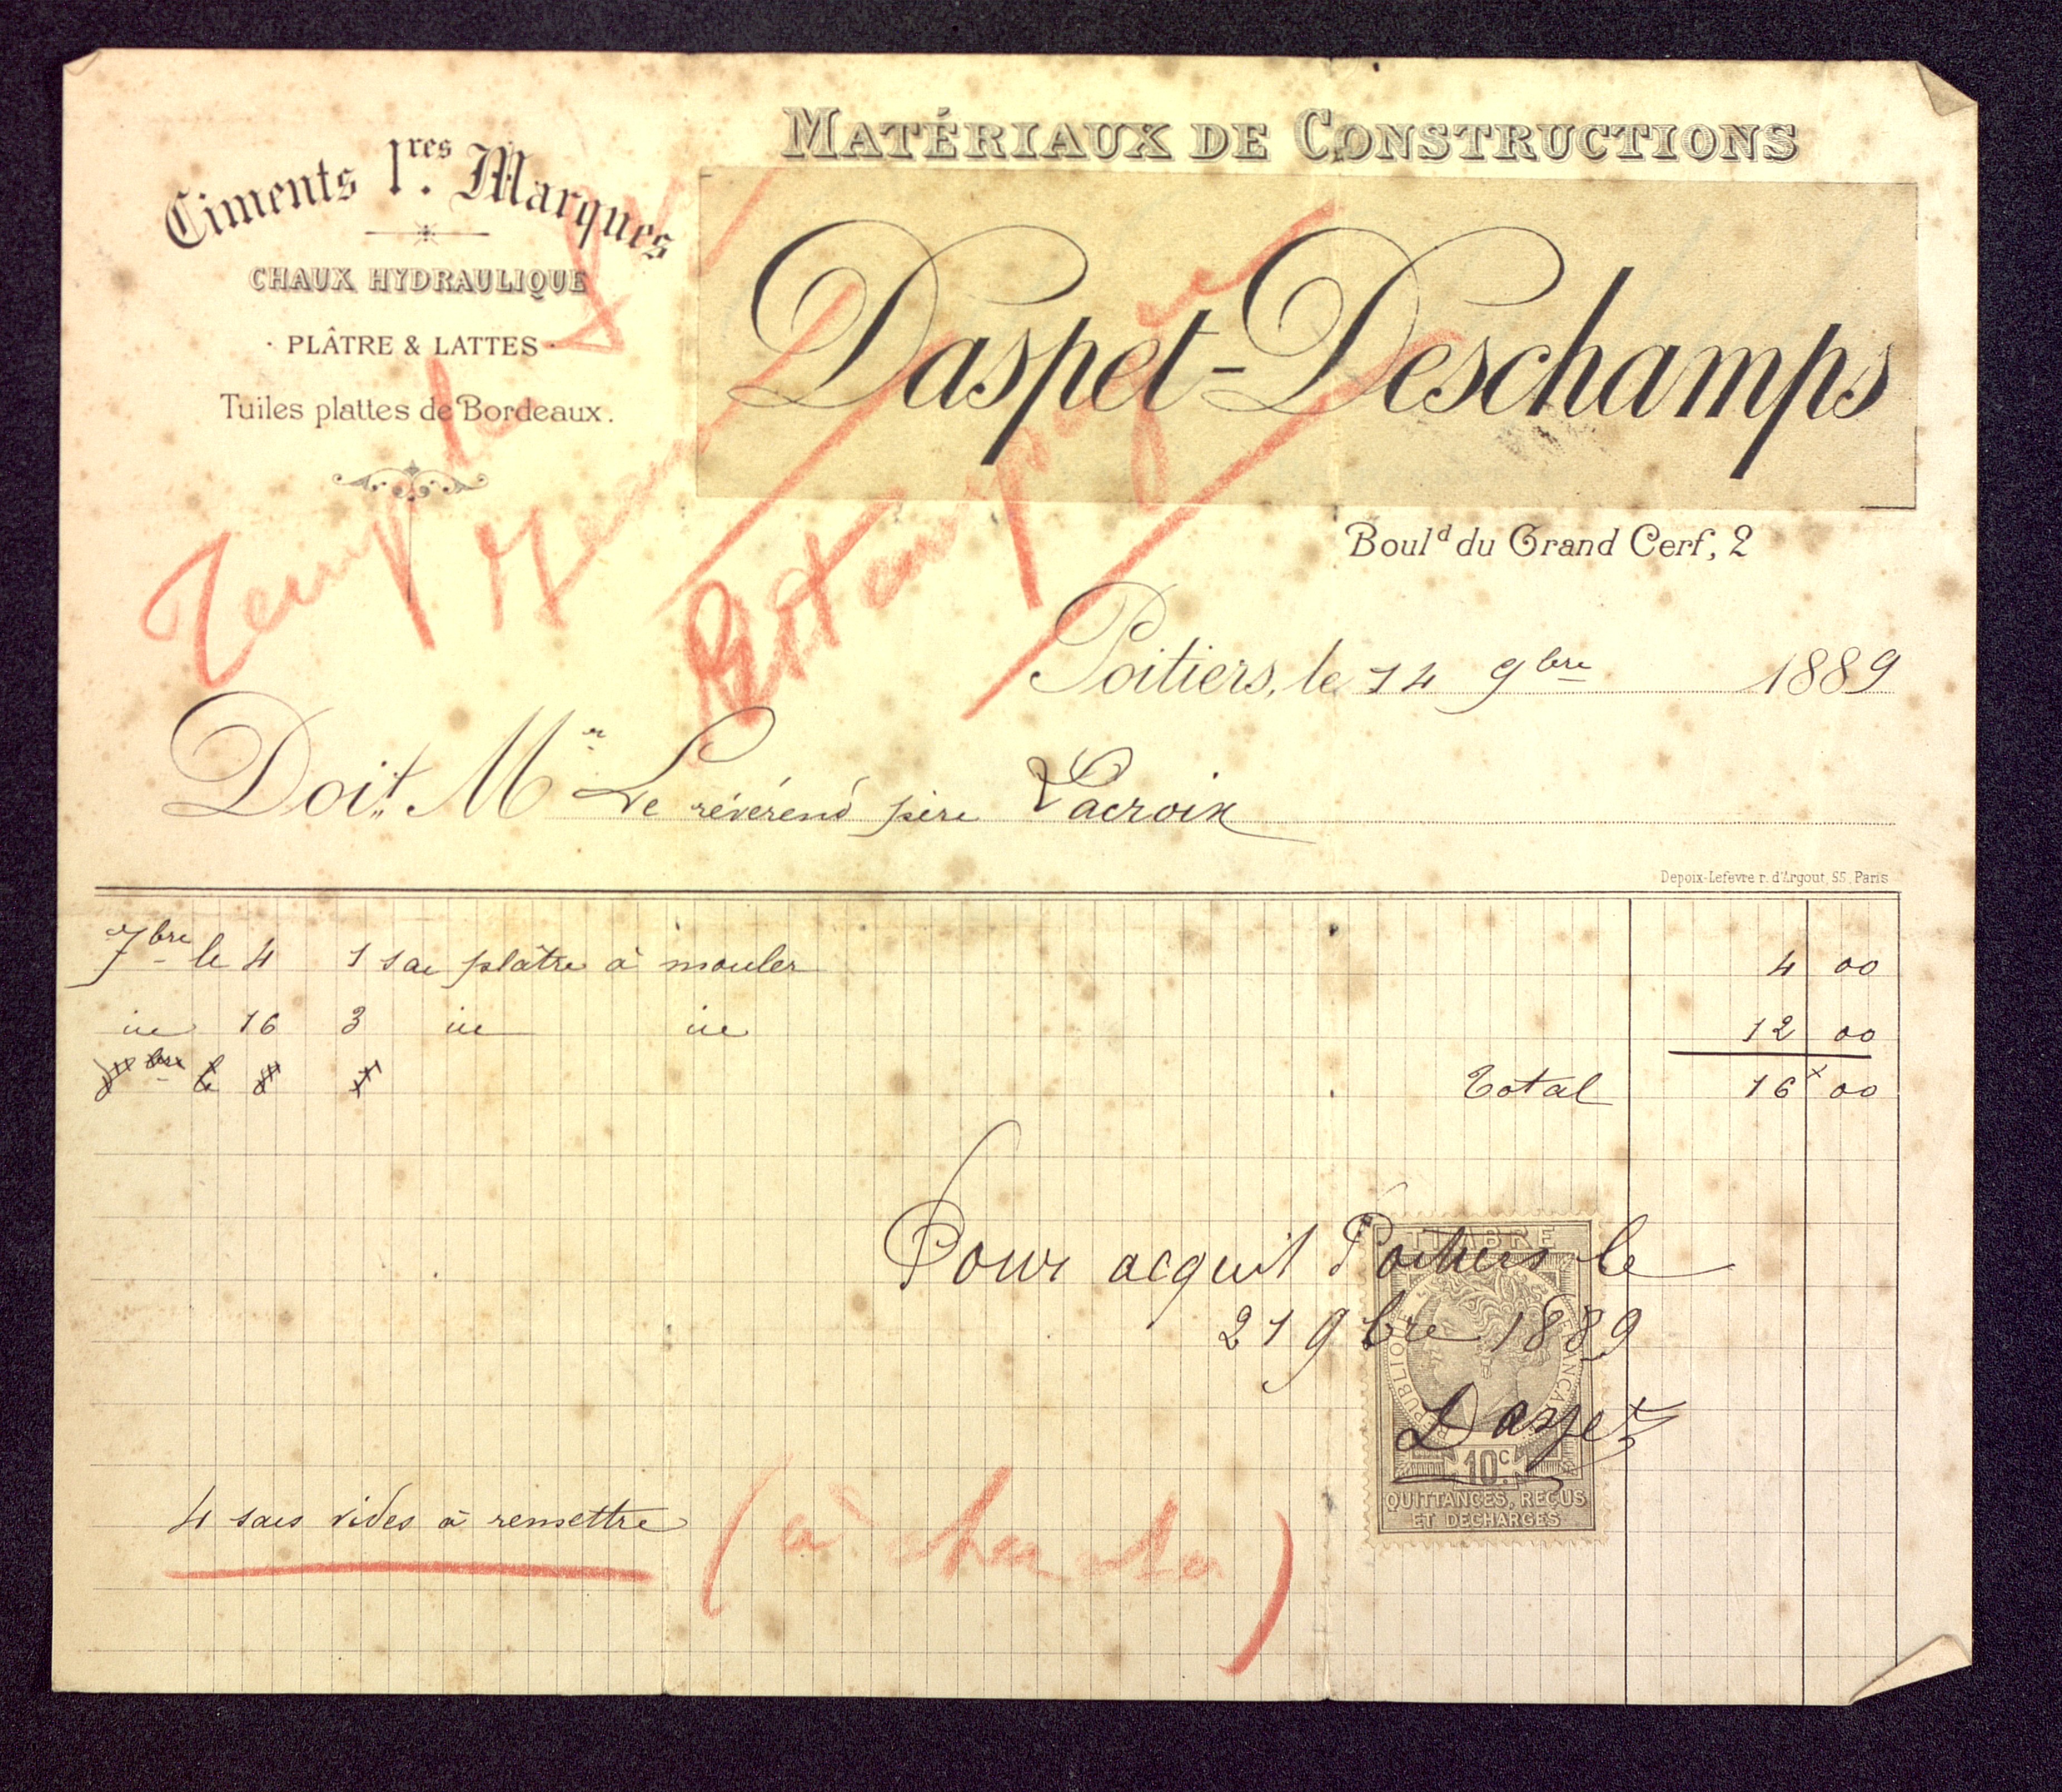 MATÉRIAUX DE CONSTRUCTIONS
Ciments 1res. Marques
CHAUX HYDRAULIQUE
· PLÂTRE & LATTES ·
Tuiles plattes de Bordeaux.
Daspet-Deschamps
Bould du Grand Cerf, 2
Est payé
Poitiers, le 14 9bre 1889
Doit Mr Le révérend père Lacroix
Depoix-Lefevre r. d'Argout, 55, Paris
7bre le 4 1 sac plâtre à mouler 4 00
id 16 3 id id 12 00
Total 16 00
Pour acquit Poitiers le
21 9bre 1889
Daspet
TIMBRE
REPUBLIQUE FRANÇAISE
10c
QUITTANCES, REÇUS
ET DECHARGES
4 sacs vides à remettre